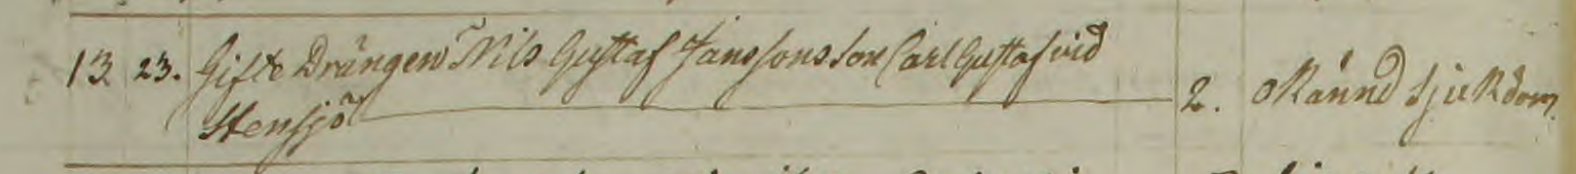 13. 23. Gifte Drängen Nils Gustaf Janssons son Carl Gustaf vid 2. okännd sjukdom.
Stensjö